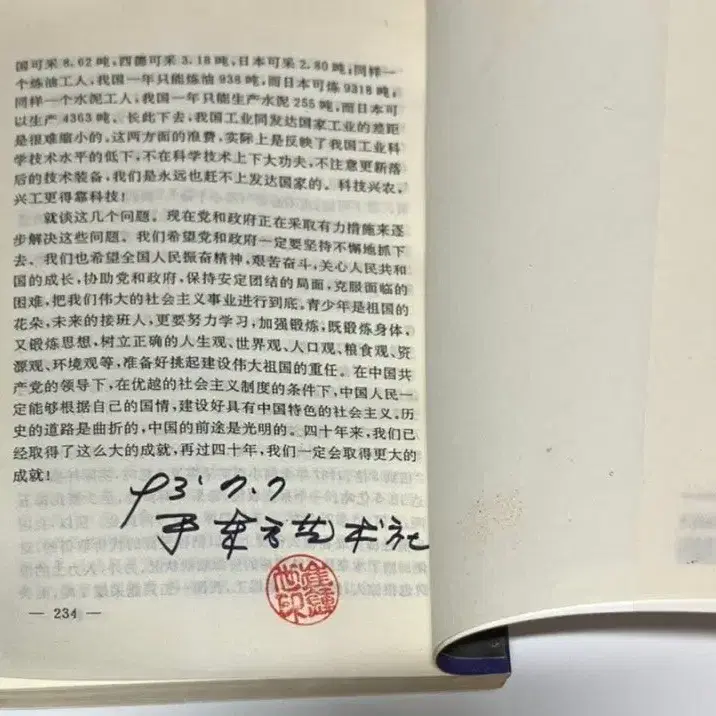 国可采8.62吨,西德可采3.18吨,日本可采2.80吨;同样一
个炼油工人,我国一年只能炼油938吨,而日本可炼9318吨,
同样一个水泥工人,我国一年只能生产水泥255吨,而日本可
以生产4363吨。长此下去,我国工业同发达国家工业的差距
是很难缩小的。这两方面的浪费,实际上是反映了我国工业科
学技术水平的低下,不在科学技术上下大功夫,不注意更新落
后的技术装备,我们是永远也赶不上发达国家的。科技兴农,
兴工更得靠科技!
就谈这几个问题。现在党和政府正在采取有力措施来逐
步解决这些问题。我们希望党和政府一定要坚持不懈地抓下
去。我们也希望全国人民振奋精神,艰苦奋斗,关心人民共和
国的成长,协助党和政府,保持安定团结的局面,克服面临的
困难,把我们伟大的社会主义事业进行到底。青少年是祖国的
花朵,未来的接班人,更要努力学习,加强锻炼,既锻炼身体,
又锻炼思想,树立正确的人生观、世界观、人口观、粮食观、资
源观、环境观等,准备好挑起建设伟大祖国的重任。在中国共
产党的领导下,在优越的社会主义制度的条件下,中国人民一
定能够根据自己的国情,建设好具有中国特色的社会主义。历
史的道路是曲折的,中国的前途是光明的。四十年来,我们已
经取得了这么大的成就,再过四十年,我们一定会取得更大的
成就!
93.7.7
于东方艺术社
— 234 —